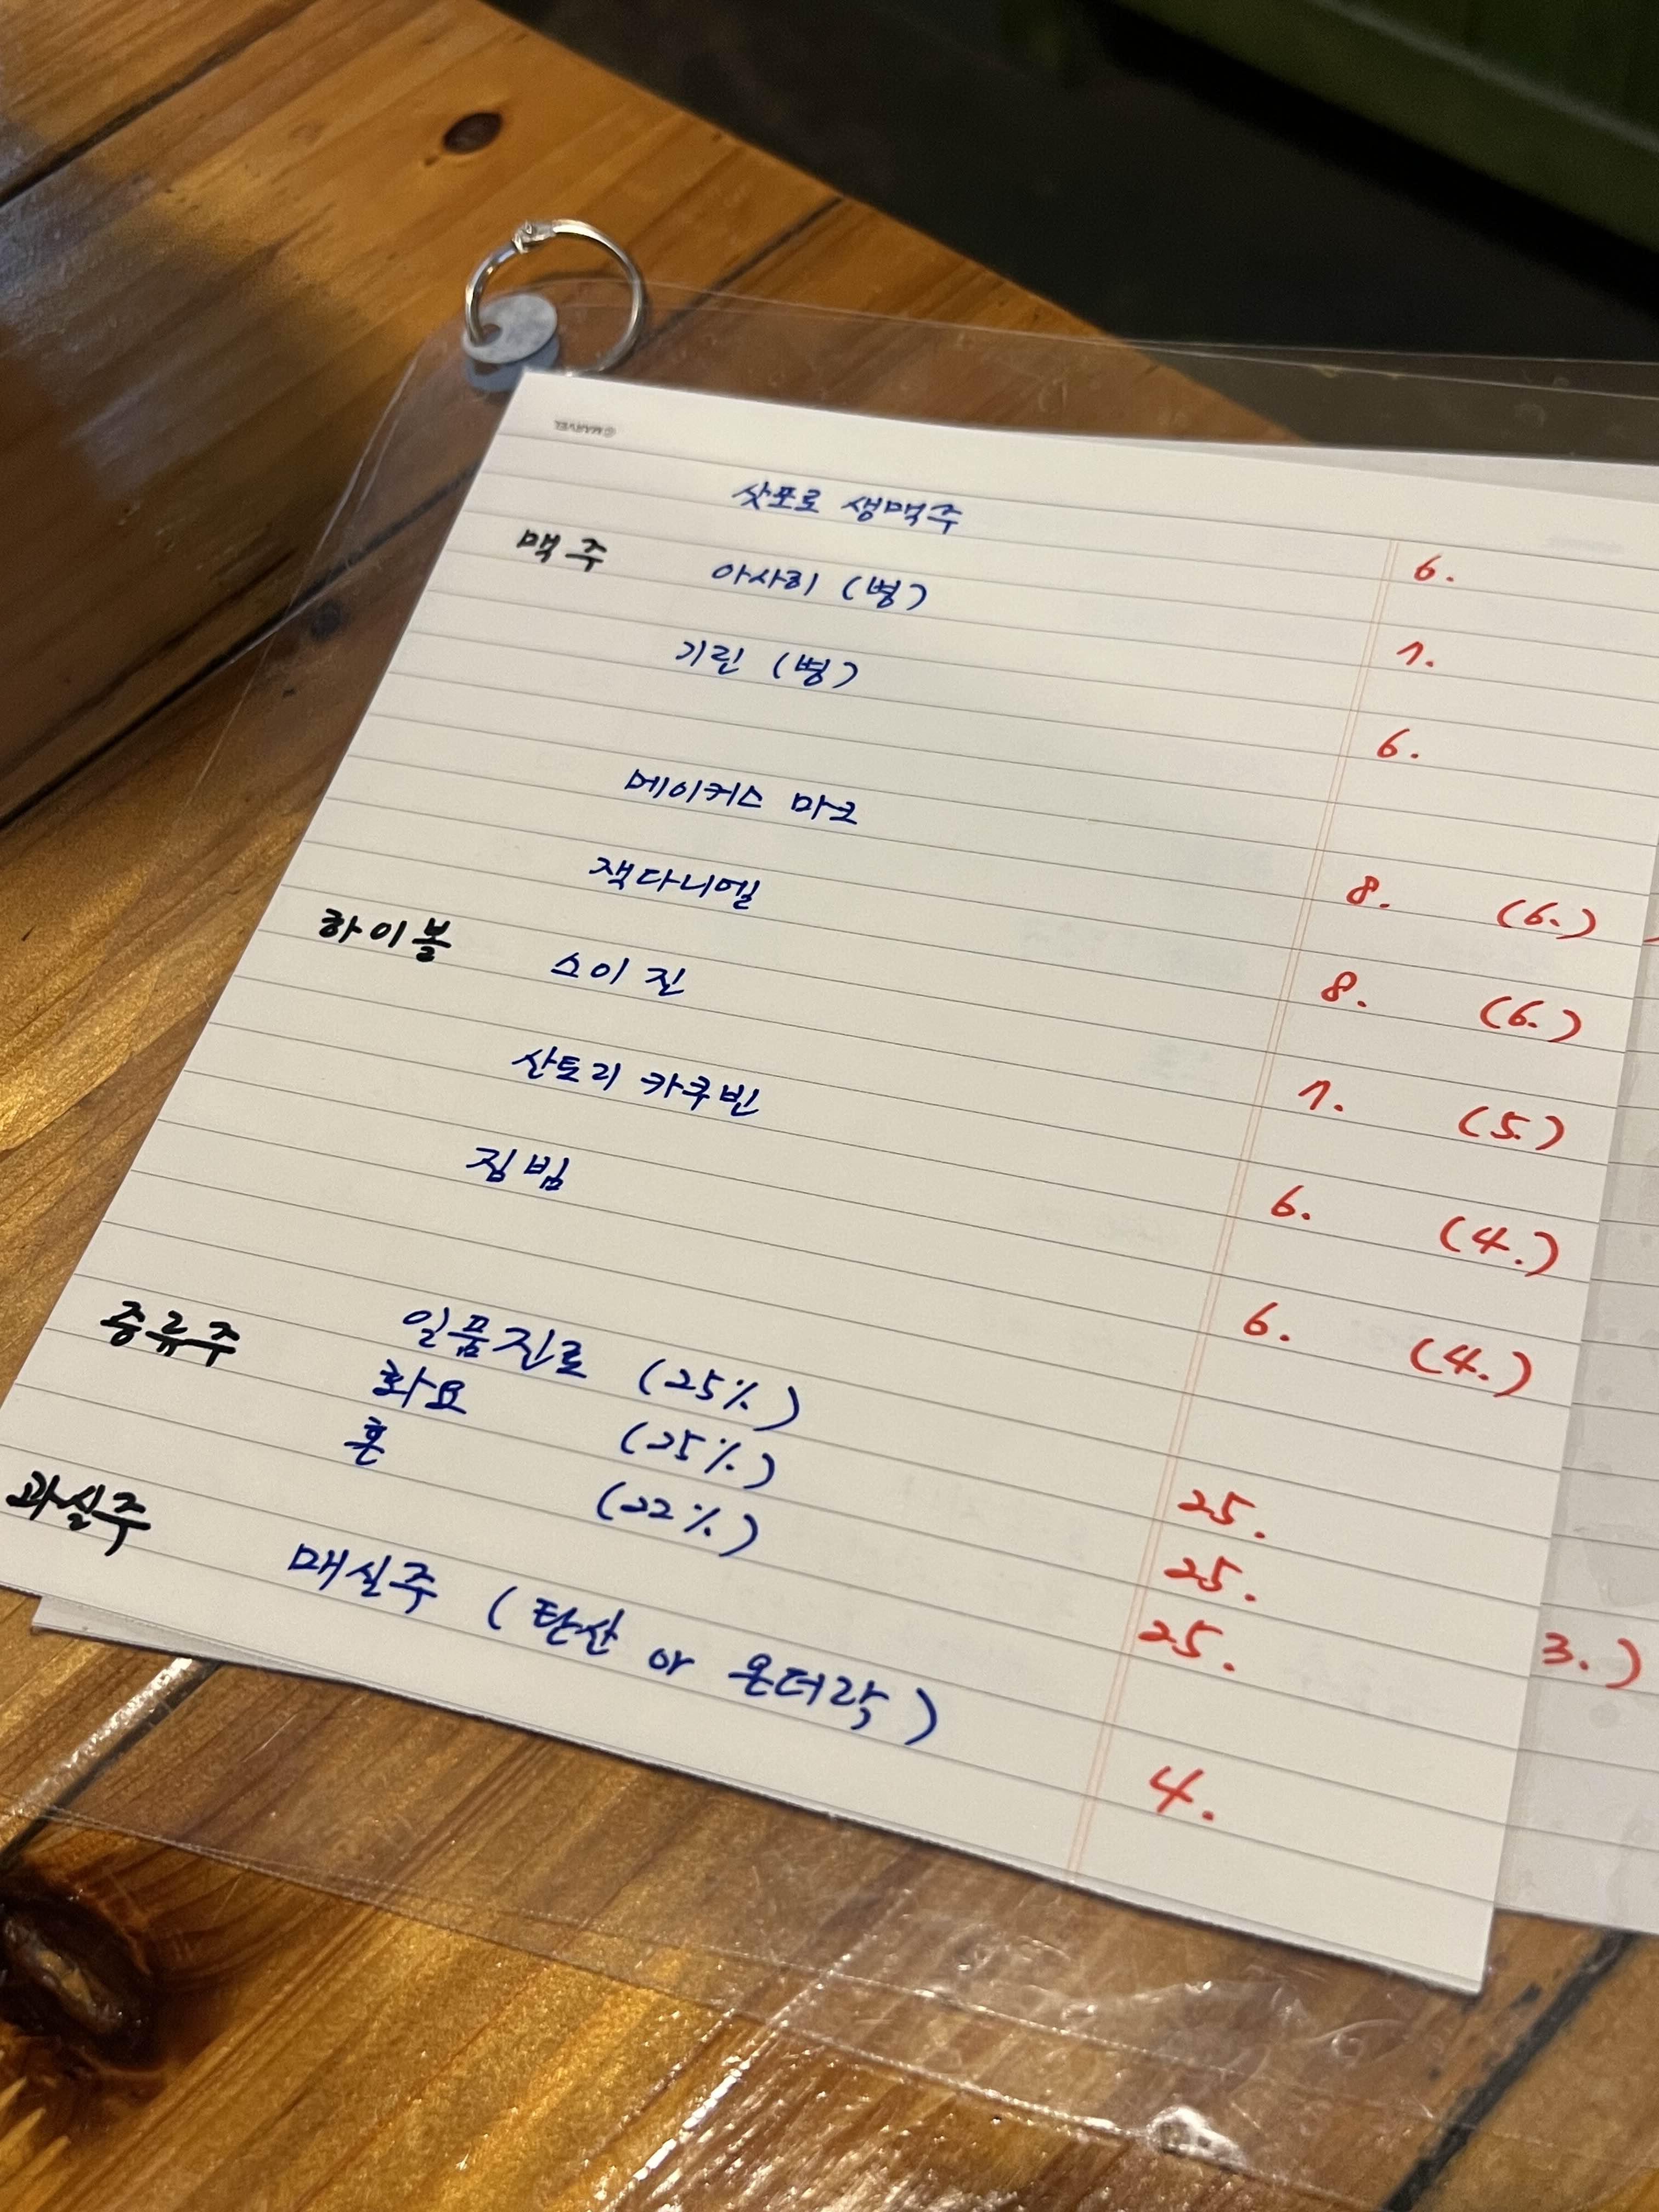 ©MARVEL
삿포로 생맥주 6.
맥주 아사히 (병) 7.
기린 (병) 6.
메이커스 마크 8. (6.)
잭다니엘 8. (6.)
하이볼 스이 진 7. (5.)
산토리 카쿠빈 6. (4.)
짐빔 6. (4.)
증류주 일품진로 (25%) 25.
화요 (25%) 25.
혼 (22%) 25.
3.)
과실주 매실주 (탄산 or 온더락) 4.